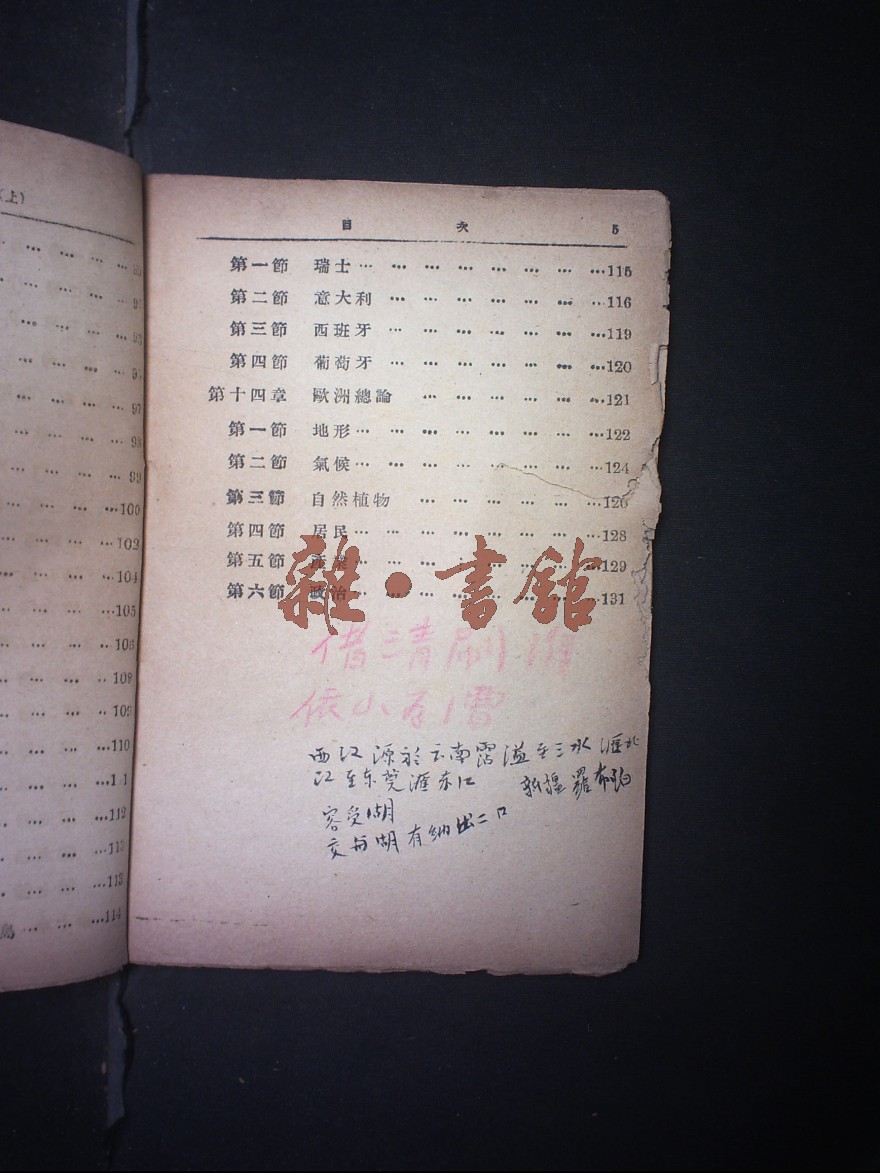 （上）
97
98
99
100
102
104
105
106
108
109
110
111
112
113
113
114
目 次 5
第一節 瑞士 … … … … … … … … …115
第二節 意大利 … … … … … … … …116
第三節 西班牙 … … … … … … … …119
第四節 葡萄牙 … … … … … … … …120
第十四章 歐洲總論 … … … … … … …121
第一節 地形 … … … … … … … … …122
第二節 氣候 … … … … … … … … …124
第三節 自然植物 … … … … … … …126
第四節 居民 … … … … … … … … …128
第五節 產業 … … … … … … … … …129
第六節 政治 … … … … … … … … …131
雜·書館
西江源於云南霑溢至三水滙北
江至东莞滙东江 新疆羅布泊
容受湖
交与湖有納出二口